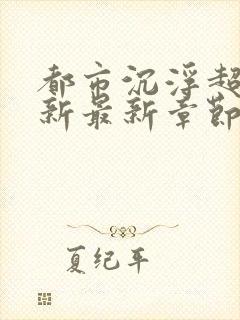 都市沉浮超
新最新章節
夏纪年